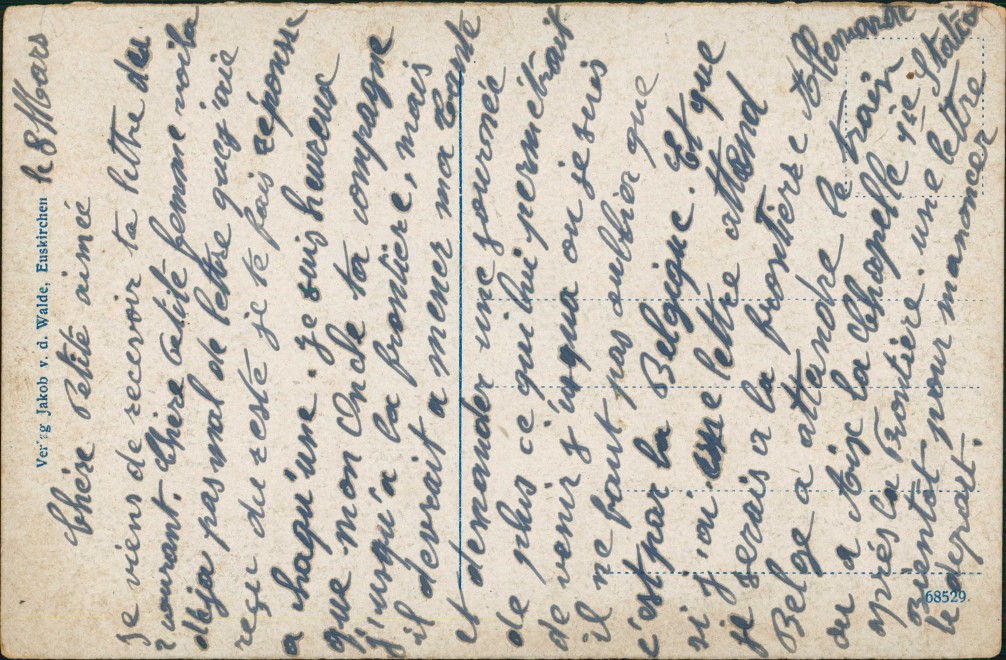 Verlag Jakob v. d. Walde, Euskirchen
le 8 Mars
Chère Petite aimée
je viens de recevoir ta lettre du
2 courant. Chère petite femme voila
déja pas mal de lettre que j'aie
reçu du reste je te fais réponse
a chaqu'une. Je suis heureux
que mon Oncle ta compagne
j'usqu'a la frontière, mais
il devrait a mener ma tante
et demander une journée
de plus ce qui lui permétrait
de venir j'usqua ou je suis
il ne faut pas oublier que
c'est par la Belgique. Et que
si j'ai une lettre attend
je serais a la frontière Allemande
Belge a attendre le train
ou a Aix la Chapelle 1re Station
après la Frontière. une lettre
Bientot pour m'anoncer
le depart.
68529